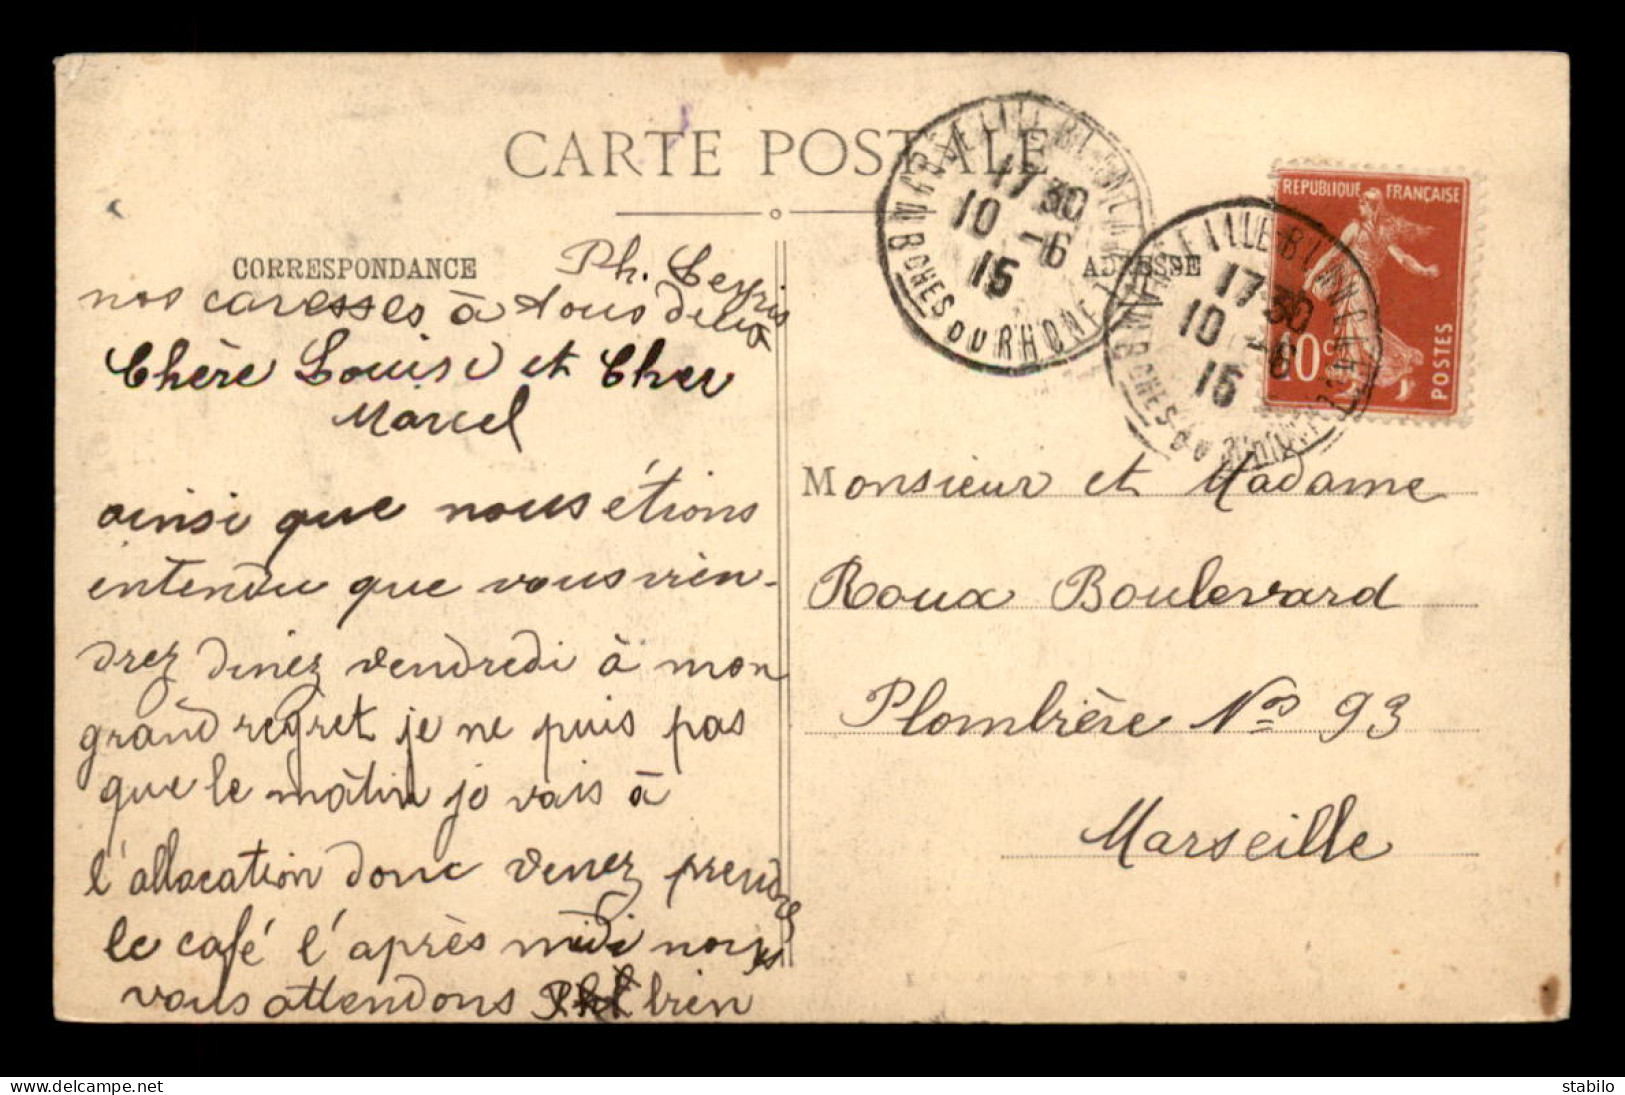 CARTE POSTALE
CORRESPONDANCE
Ph. Leyris
nos caresses à tous deux
Chère Louise et Cher
Marcel
ainsi que nous étions
entendu que vous vien-
drez dinez vendredi à mon
grand regret je ne puis pas
que le mâtin je vais à
l'allocation donc venez prendre
le café l'après midi nous
vous attendons bien
17 30
10 - 6
15
BCHES DU RHONE
ADRESSE
17 30
10 - 6
15
REPUBLIQUE FRANÇAISE
10 c
POSTES
Monsieur et Madame
Roux Boulevard
Plombière No 93
Marseille
delcampe.net
stabilo